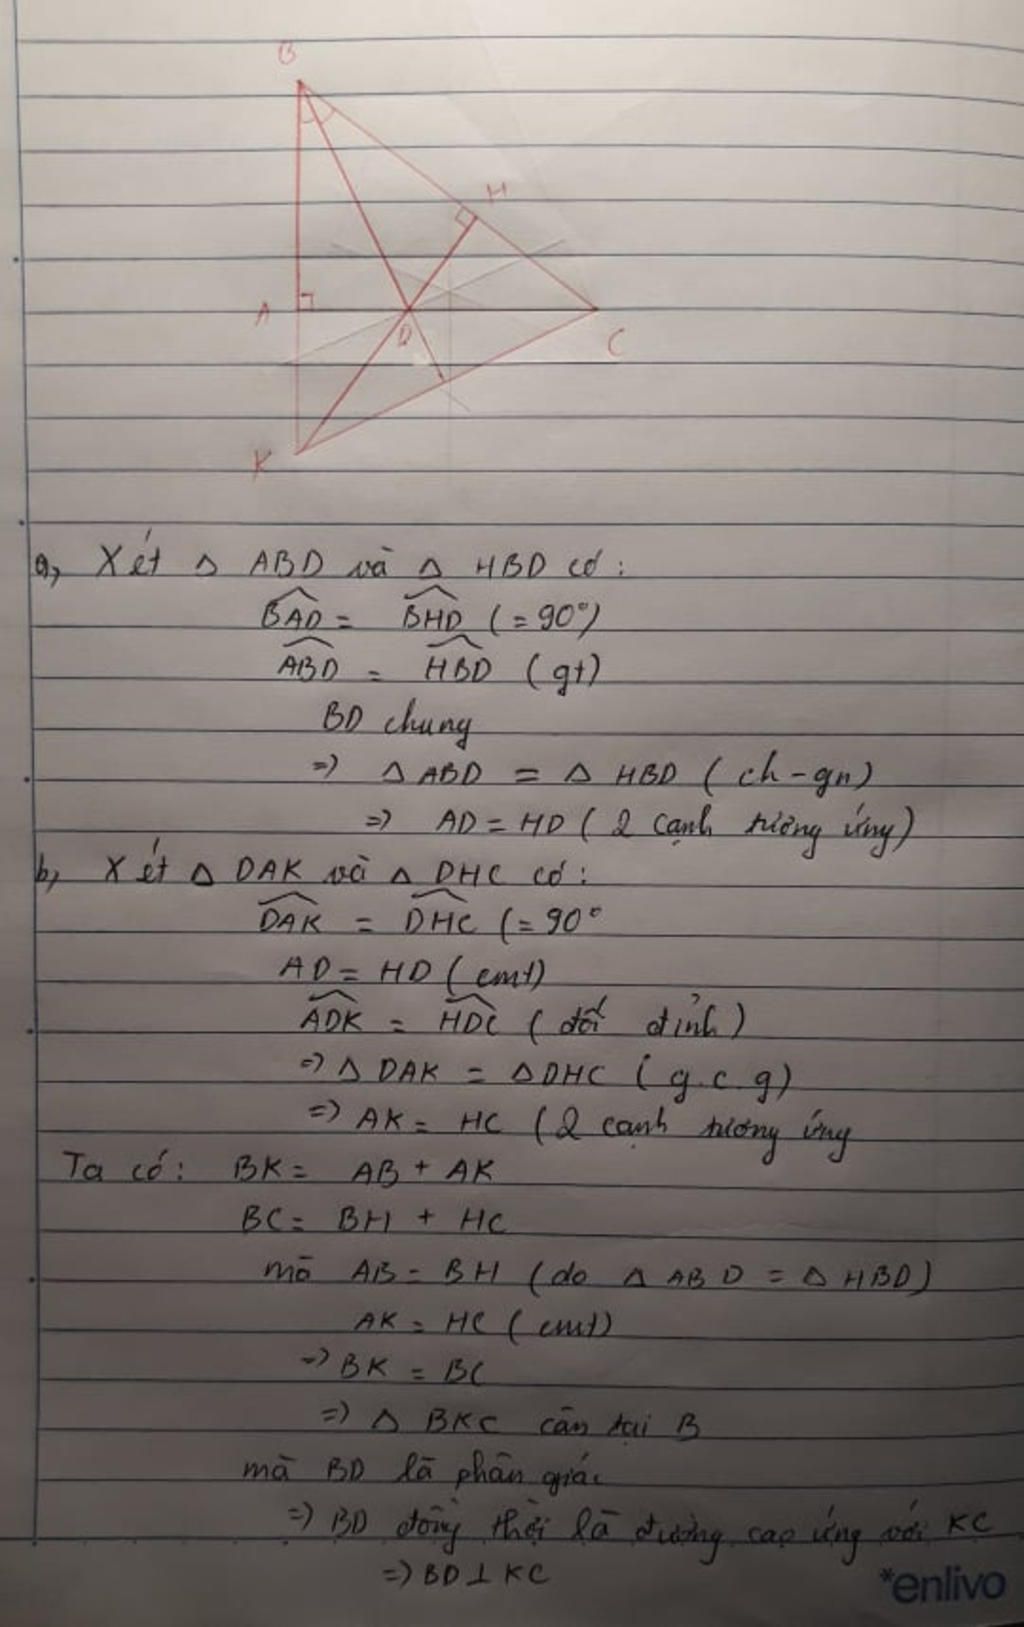 B
H
A
D
C
K
a, Xét △ ABD và △ HBD có :
BAD = BHD (= 90°)
ABD = HBD (gt)
BD chung
=> △ ABD = △ HBD ( ch - gn)
=> AD = HD ( 2 cạnh tương ứng)
b, Xét △ DAK và △ DHC có :
DAK = DHC (= 90°
AD = HD ( cmt)
ADK = HDC ( đối đỉnh )
=> △ DAK = △ DHC ( g.c.g)
=> AK = HC ( 2 cạnh tương ứng
Ta có : BK = AB + AK
BC = BH + HC
mà AB = BH ( do △ ABD = △ HBD)
AK = HC ( cmt)
=> BK = BC
=> △ BKC cân tại B
mà BD là phân giác
=> BD đồng thời là đường cao ứng với KC
=> BD ⊥ KC
*enlivo